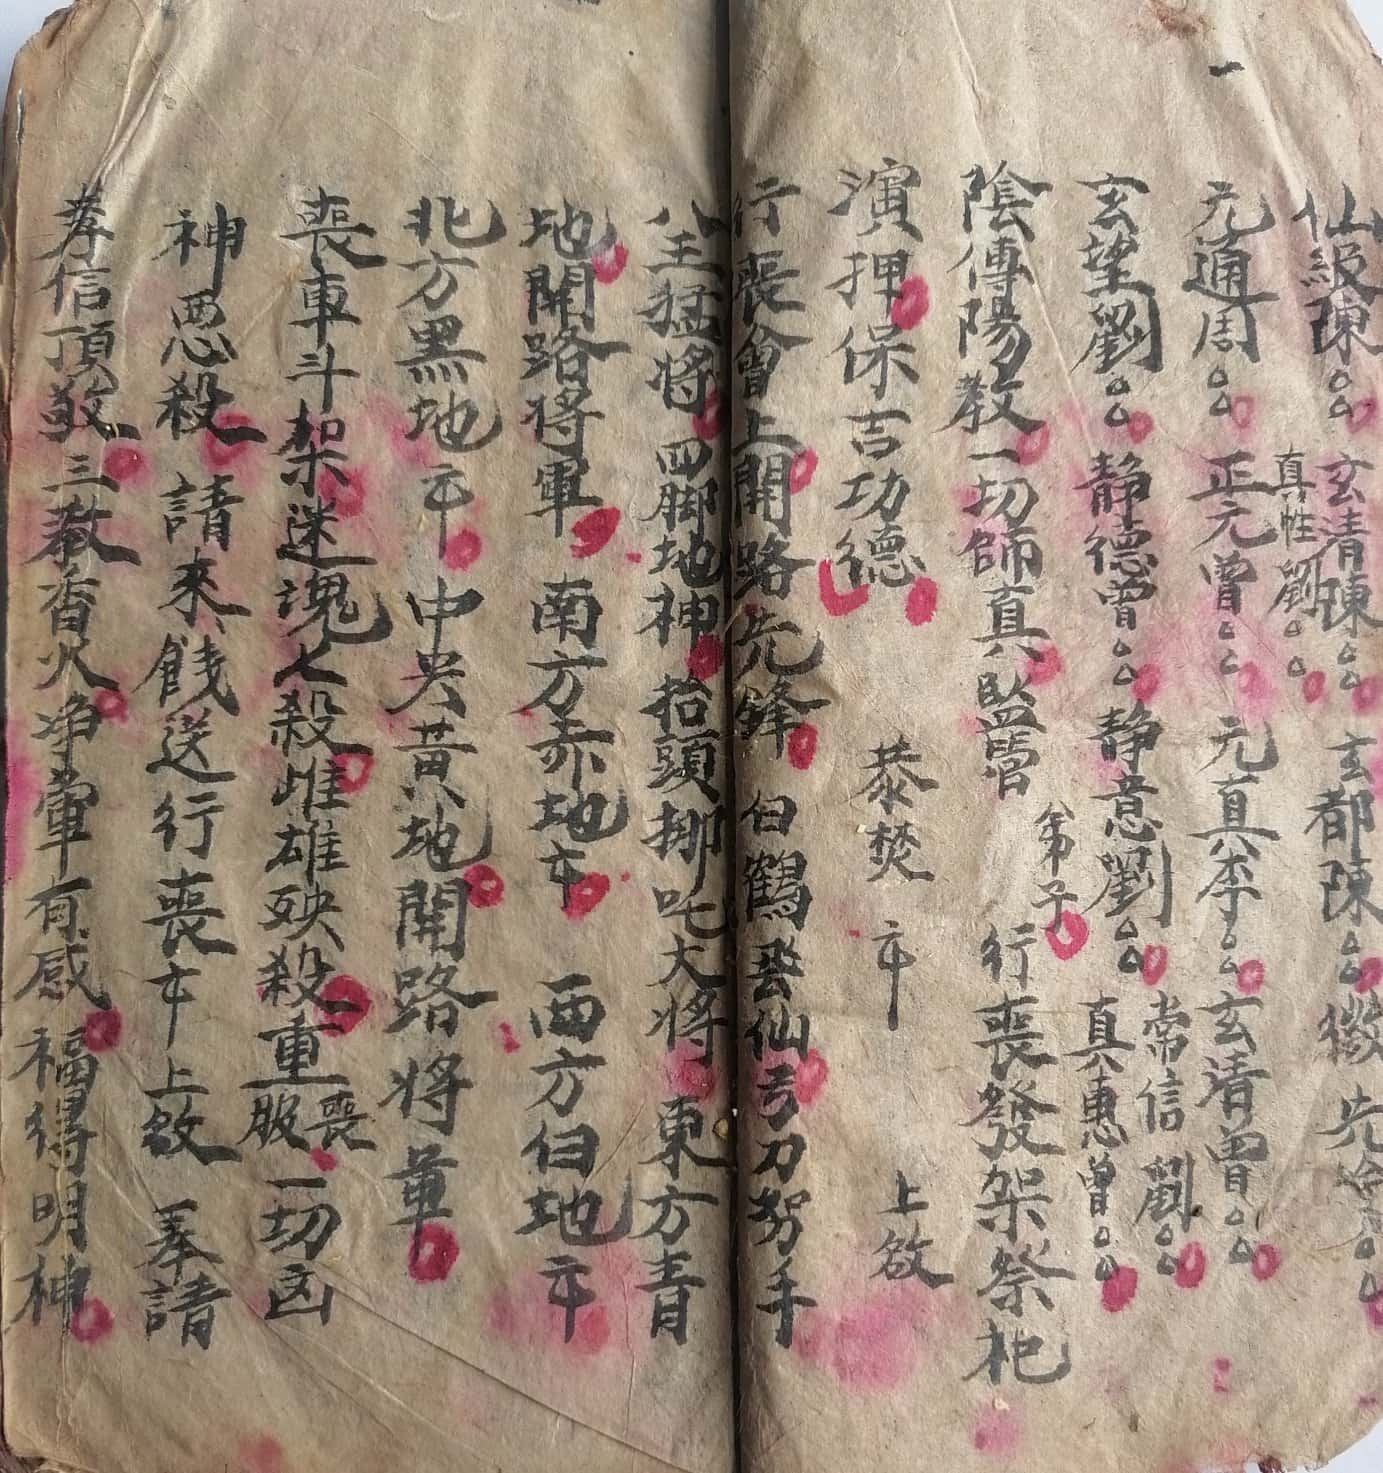 仙級陳 玄清陳 玄都陳 徽先
真性劉
元通周 正元曾 元真李 玄清曾
玄望劉 静德曾 静意劉 常信劉
真惠曾
陰傳陽教一切師真監當 弟子 行喪發架祭祀
演押保吉功德 恭焚 上啟
行喪會上開路先鋒 白鶴登仙弓刀努手
八王猛將 四脚地神 抬頭挪吒大将 東方青
地開路将軍 南方赤地 西方白地
北方黑地 中央黃地開路将軍
喪車斗架迷魂七殺雌雄殃殺重喪服一切凶
神惡殺 請來餞送行喪 上啟 一奉請
孝信頂敬 三教香火净筆有感 福得明神